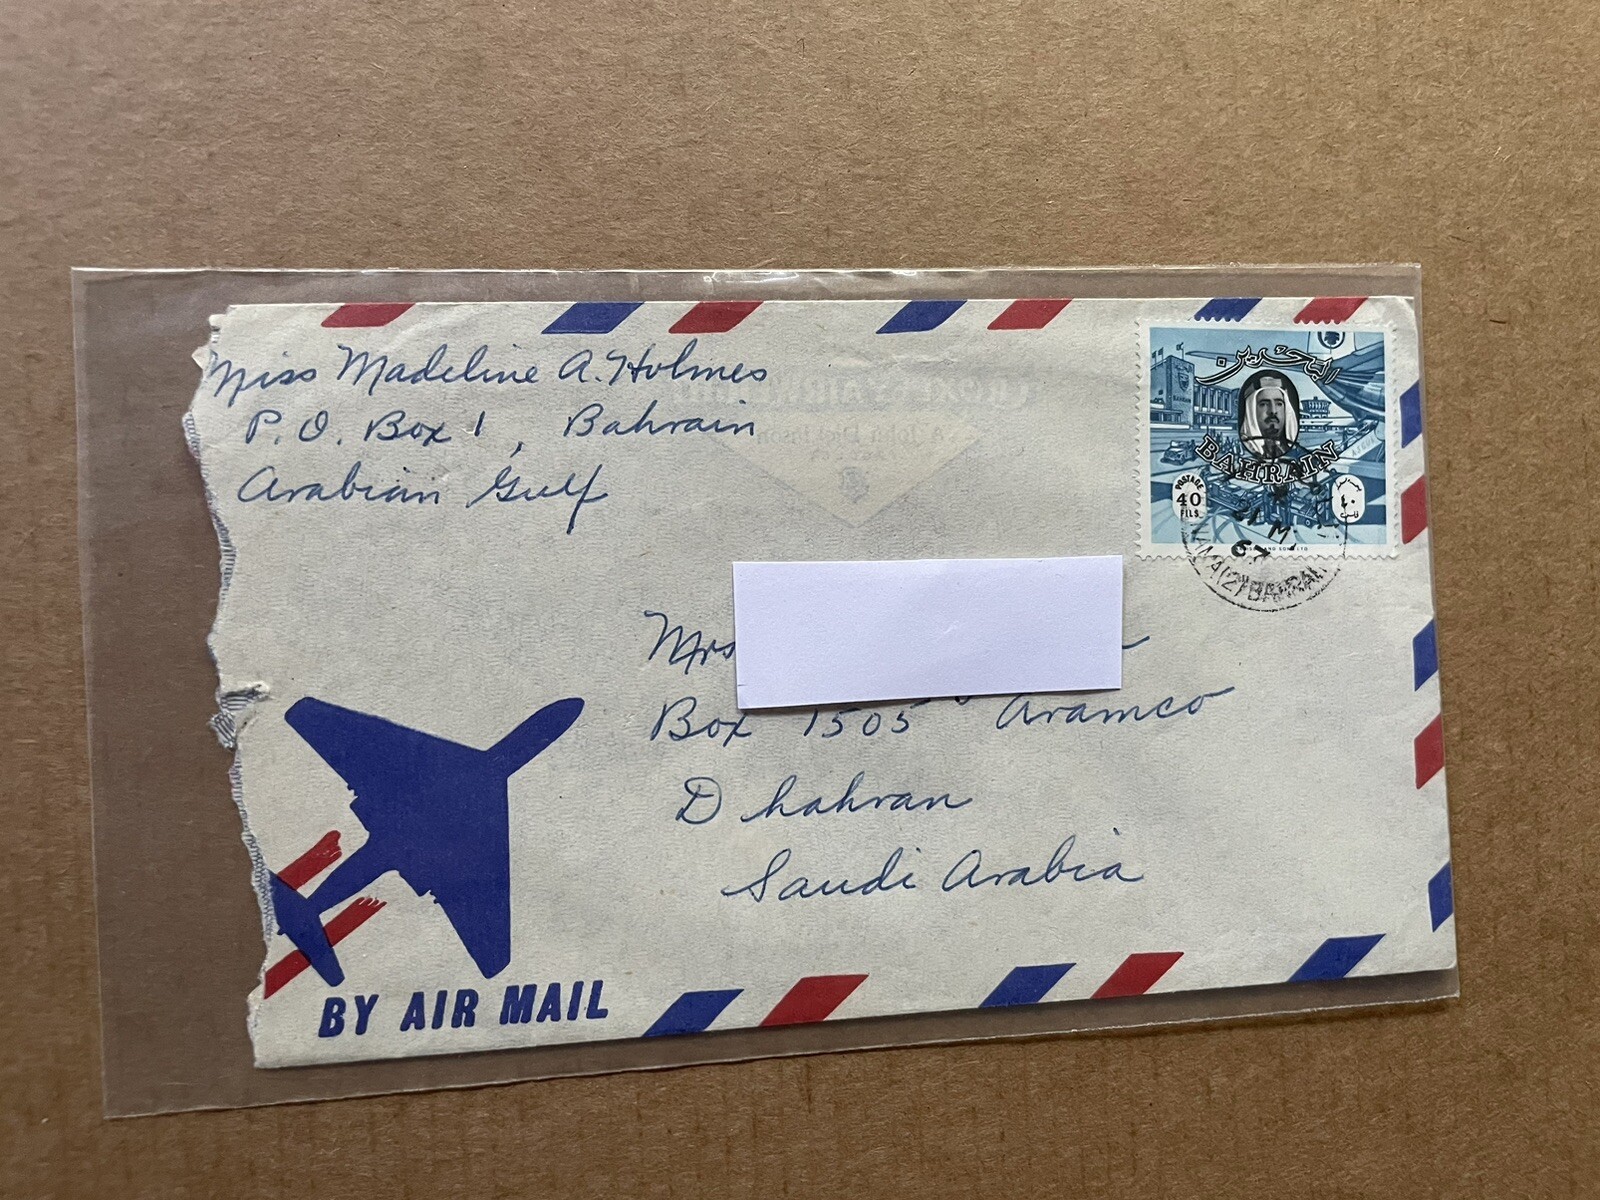 Miss Madeline A. Holmes
P. O. Box 1, Bahrain
Arabian Gulf
البحرين
BAHRAIN
POSTAGE
40
FILS
٤٠
67
(2) BAHRAIN
Mrs
Box 1505 Aramco
Dhahran
Saudi Arabia
BY AIR MAIL